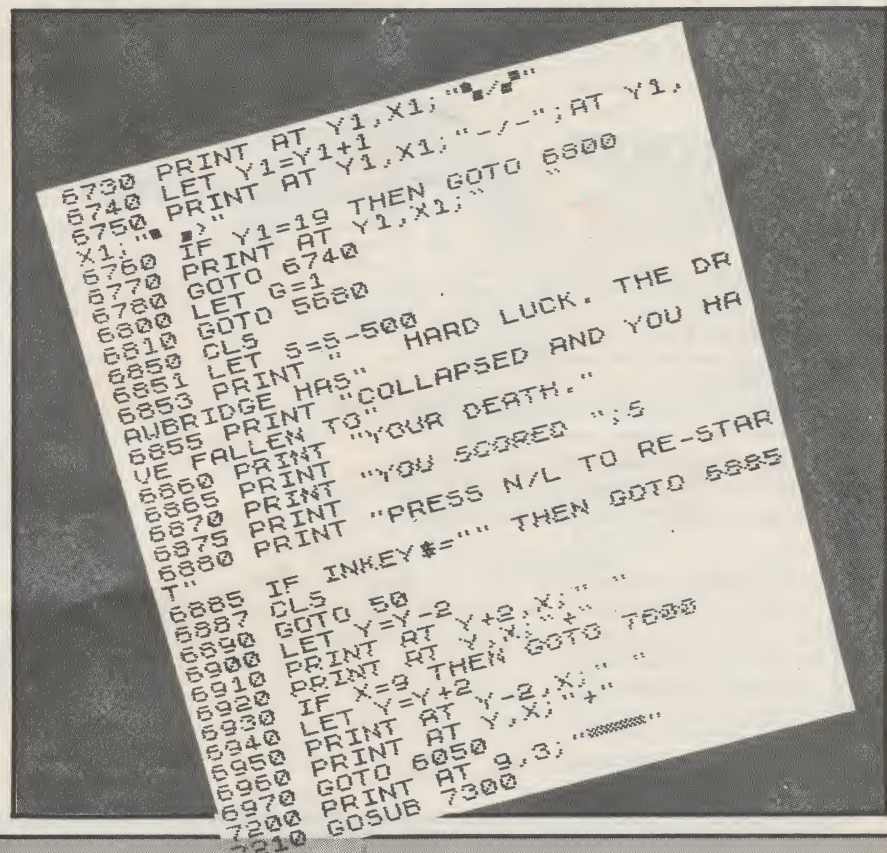 6730 PRINT AT Y1,X1;"▚/▞"
6740 LET Y1=Y1+1
6750 PRINT AT Y1,X1;"-/-";AT Y1,
X1;"▪ ▪>"
6760 IF Y1=19 THEN GOTO 6800
6770 PRINT AT Y1,X1;"   "
6780 GOTO 6740
6800 LET G=1
6810 GOTO 5680
6850 CLS
6851 LET S=S-500
6853 PRINT "   HARD LUCK. THE DR
AWBRIDGE HAS"
6855 PRINT "COLLAPSED AND YOU HA
VE FALLEN TO"
6860 PRINT "YOUR DEATH."
6865 PRINT
6870 PRINT "YOU SCORED ";S
6875 PRINT
6880 PRINT "PRESS N/L TO RE-STAR
T"
6885 IF INKEY$="" THEN GOTO 6885
6887 CLS
6890 GOTO 50
6900 LET Y=Y-2
6910 PRINT AT Y+2,X;" "
6920 PRINT AT Y,X;"+"
6930 IF X=9 THEN GOTO 7600
6940 LET Y=Y+2
6950 PRINT AT Y-2,X;" "
6960 PRINT AT Y,X;"+"
6970 GOTO 6050
7200 PRINT AT 9,3;"▒▒▒▒▒▒"
7210 GOSUB 7300